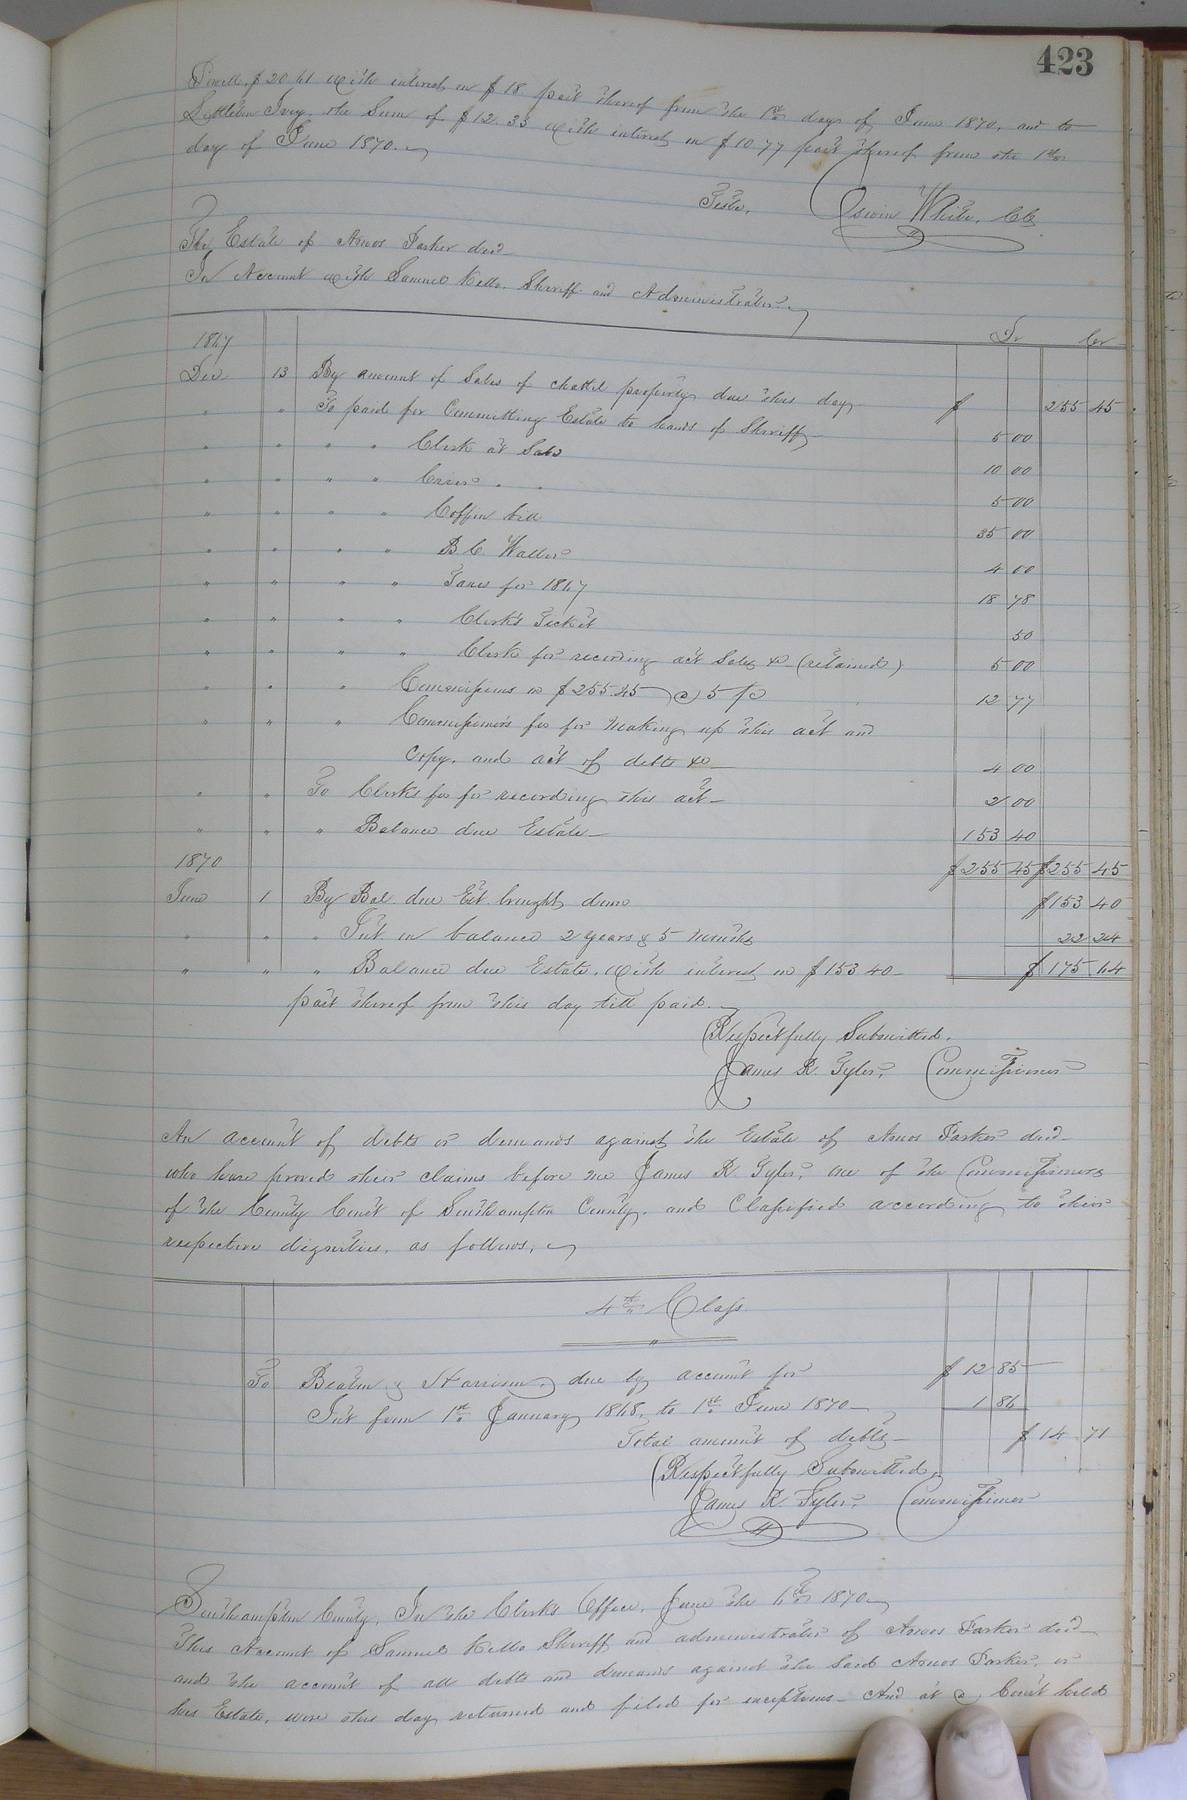 423
Powell, $20.61 with interest on $18 part thereof from the 1st day of June 1870, and to
Littleton Ivey, the Sum of $12.33 with interest on $10.77 part thereof from the 1st
day of June 1870.
Teste, White, CC
The Estate of Amos Parker decd
In Account with Samuel Kello, Sheriff and Administrator
Dr Cr
1867
Dec 13 By amount of Sales of chattel property due this day $ 255 45
" " To paid for Committing Estate to hands of Sheriff 5 00
" " " " Clerk at Sale 10 00
" " " " Crier " " 5 00
" " " " Coffin bill 35 00
" " " " B. C. Waller 4 00
" " " " Taxes for 1867 18 78
" " " " Clerk's Ticket 50
" " " " Clerk for recording act Sales &c (retained) 5 00
" " " Commissions on $255.45 @ 5 % 12 77
" " " Commissioner's fee for making up this act and
Copy, and act of debts &c 4 00
" " To Clerks fee for recording this act 2 00
" " " Balance due Estate 153 40
1870 $255 45 $255 45
June 1 By Bal. due Est. brought down $153 40
" " " Int. on balance 2 years & 5 months 22 24
" " " Balance due Estate, with interest on $153 40 $175 64
part thereof from this day till paid.
Respectfully Submitted,
James R. Tyler, Commissioner
An account of debts or demands against the Estate of Amos Parker decd
who have proved their claims before me James R. Tyler, one of the Commissioners
of the County Court of Southampton County, and Classified according to their
respective dignities, as follows,
4th Class
To Beaton & Harrison, due by account for $12 85
Int from 1st January 1868, to 1st June 1870 1 86
Total amount of debts $14 71
Respectfully Submitted,
James R. Tyler, Commissioner
Southampton County, In the Clerks Office, June the 6th 1870
This Account of Samuel Kello Sheriff and administrator of Amos Parker decd
and the account of all debts and demands against the Said Amos Parker, or
his Estate, were this day returned and filed for exceptions And at a Court held